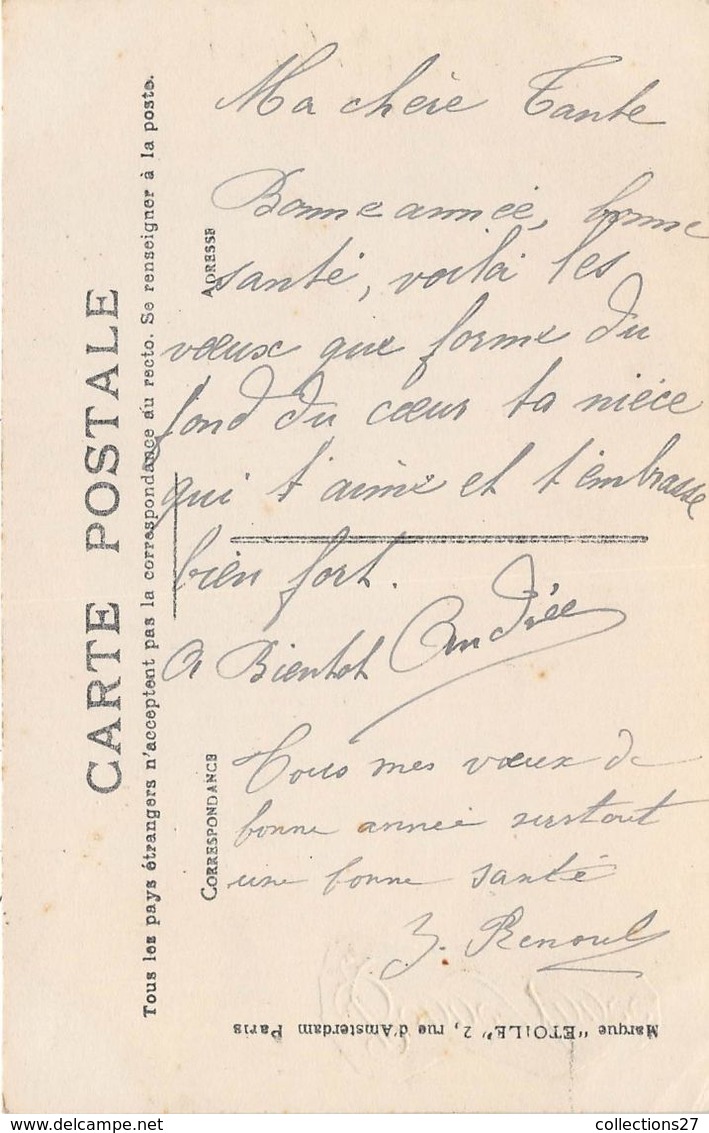 CARTE POSTALE
Tous les pays étrangers n'acceptent pas la correspondance au recto. Se renseigner à la poste.
ADRESSE
CORRESPONDANCE
Ma chère Tante
Bonne année, bonne
santé, voilà les
vœux que forme du
fond du cœur ta nièce
qui t'aime et t'embrasse
bien fort.
A Bientot Andrée
Tous mes vœux de
bonne année surtout
une bonne santé
Renoul
Marque "ETOILE" 2, rue d'Amsterdam Paris
collections27